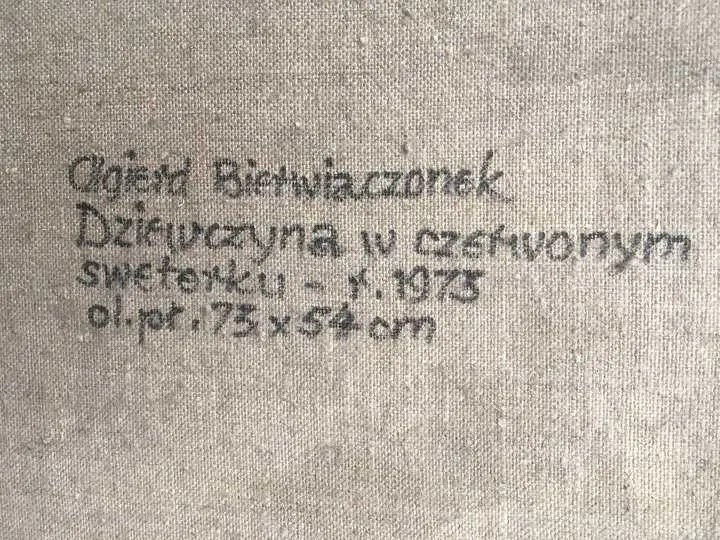 Olgierd Bierwiaczonek
Dziewczyna w czerwonym
sweterku - r. 1973
ol. pł. 73 x 54 cm